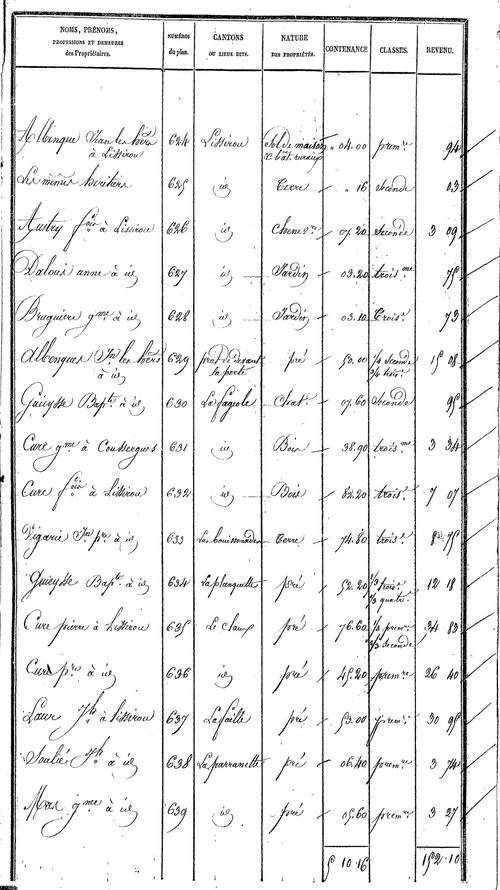 NOMS, PRÉNOMS, PROFESSIONS ET DEMEURES des Propriétaires. | NUMÉROS du plan. | CANTONS OU LIEUX DITS. | NATURE DES PROPRIÉTÉS. | CONTENANCE | CLASSES. | REVENU.
Albinque Jean les hérs à Lissirou | 624 | Lissirou | Sol de maison & bat. ruraux | " 04.00 | premre | 94
Les mêmes heritiers | 625 | id | Terre | " 16 | Seconde | 03
Austry fois à Lissirou | 626 | id | | 07.20 | Seconde | 3 09
Dalous anne à id | 627 | id | Jardin | 03.20 | troisme | 75
Bruguiere gme à id | 628 | id | Jardin | 03.10 | Trois | 73
Albenques Jn les hérs à id | 629 | prat de devant la porte | pré | 50.00 | 1/2 Seconde 1/2 trois | 15 08
Guieysse Bapte à id | 630 | La fagiole | | 07.60 | Seconde | 95
Cure gme à Coussergues | 631 | id | Bois | 38.90 | troisme | 3 34
Cure fois à Lissirou | 632 | id | Bois | 82.20 | trois | 7 07
Vigarié Jn pre à id | 633 | Las bouissonnades | Terre | 74.80 | trois | 8 75
Guieysse Bapte à id | 634 | La planquette | pré | 52.20 | trois quatr | 12 18
Cure pierre à Lissirou | 635 | Le Claux | pré | 76.60 | 1/2 premre 1/2 Seconde | 34 83
Cure pre à id | 636 | id | pré | 45.20 | premre | 26 40
Laur Jh à Lissirou | 637 | La faille | pré | 53.00 | premre | 30 95
Soulié Jh à id | 638 | La parranette | pré | 06.40 | premre | 3 74
Mas gme à id | 639 | id | pré | 05.60 | premre | 3 27
5 10.16 | 152.10